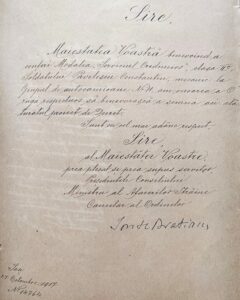 Sire,
Maiestatea Voastră binevoind a
conferi Medalia „Serviciul Credincios”, clasa IIª
Soldatului Pavelescu Constantin, mecanic la
Grupul de autocamioane Nº
rog respectuos să binevoiască a semna
alăturatul proiect de Decret.
Sunt cu cel mai adânc respect,
Sire,
al Maiestăței Voastre,
prea plecat și prea supus servitor
Președintele Consiliului
Ministru al Afacerilor Străine
Cancelar al Ordinelor
Iași
17 Octombrie 1917
Nº